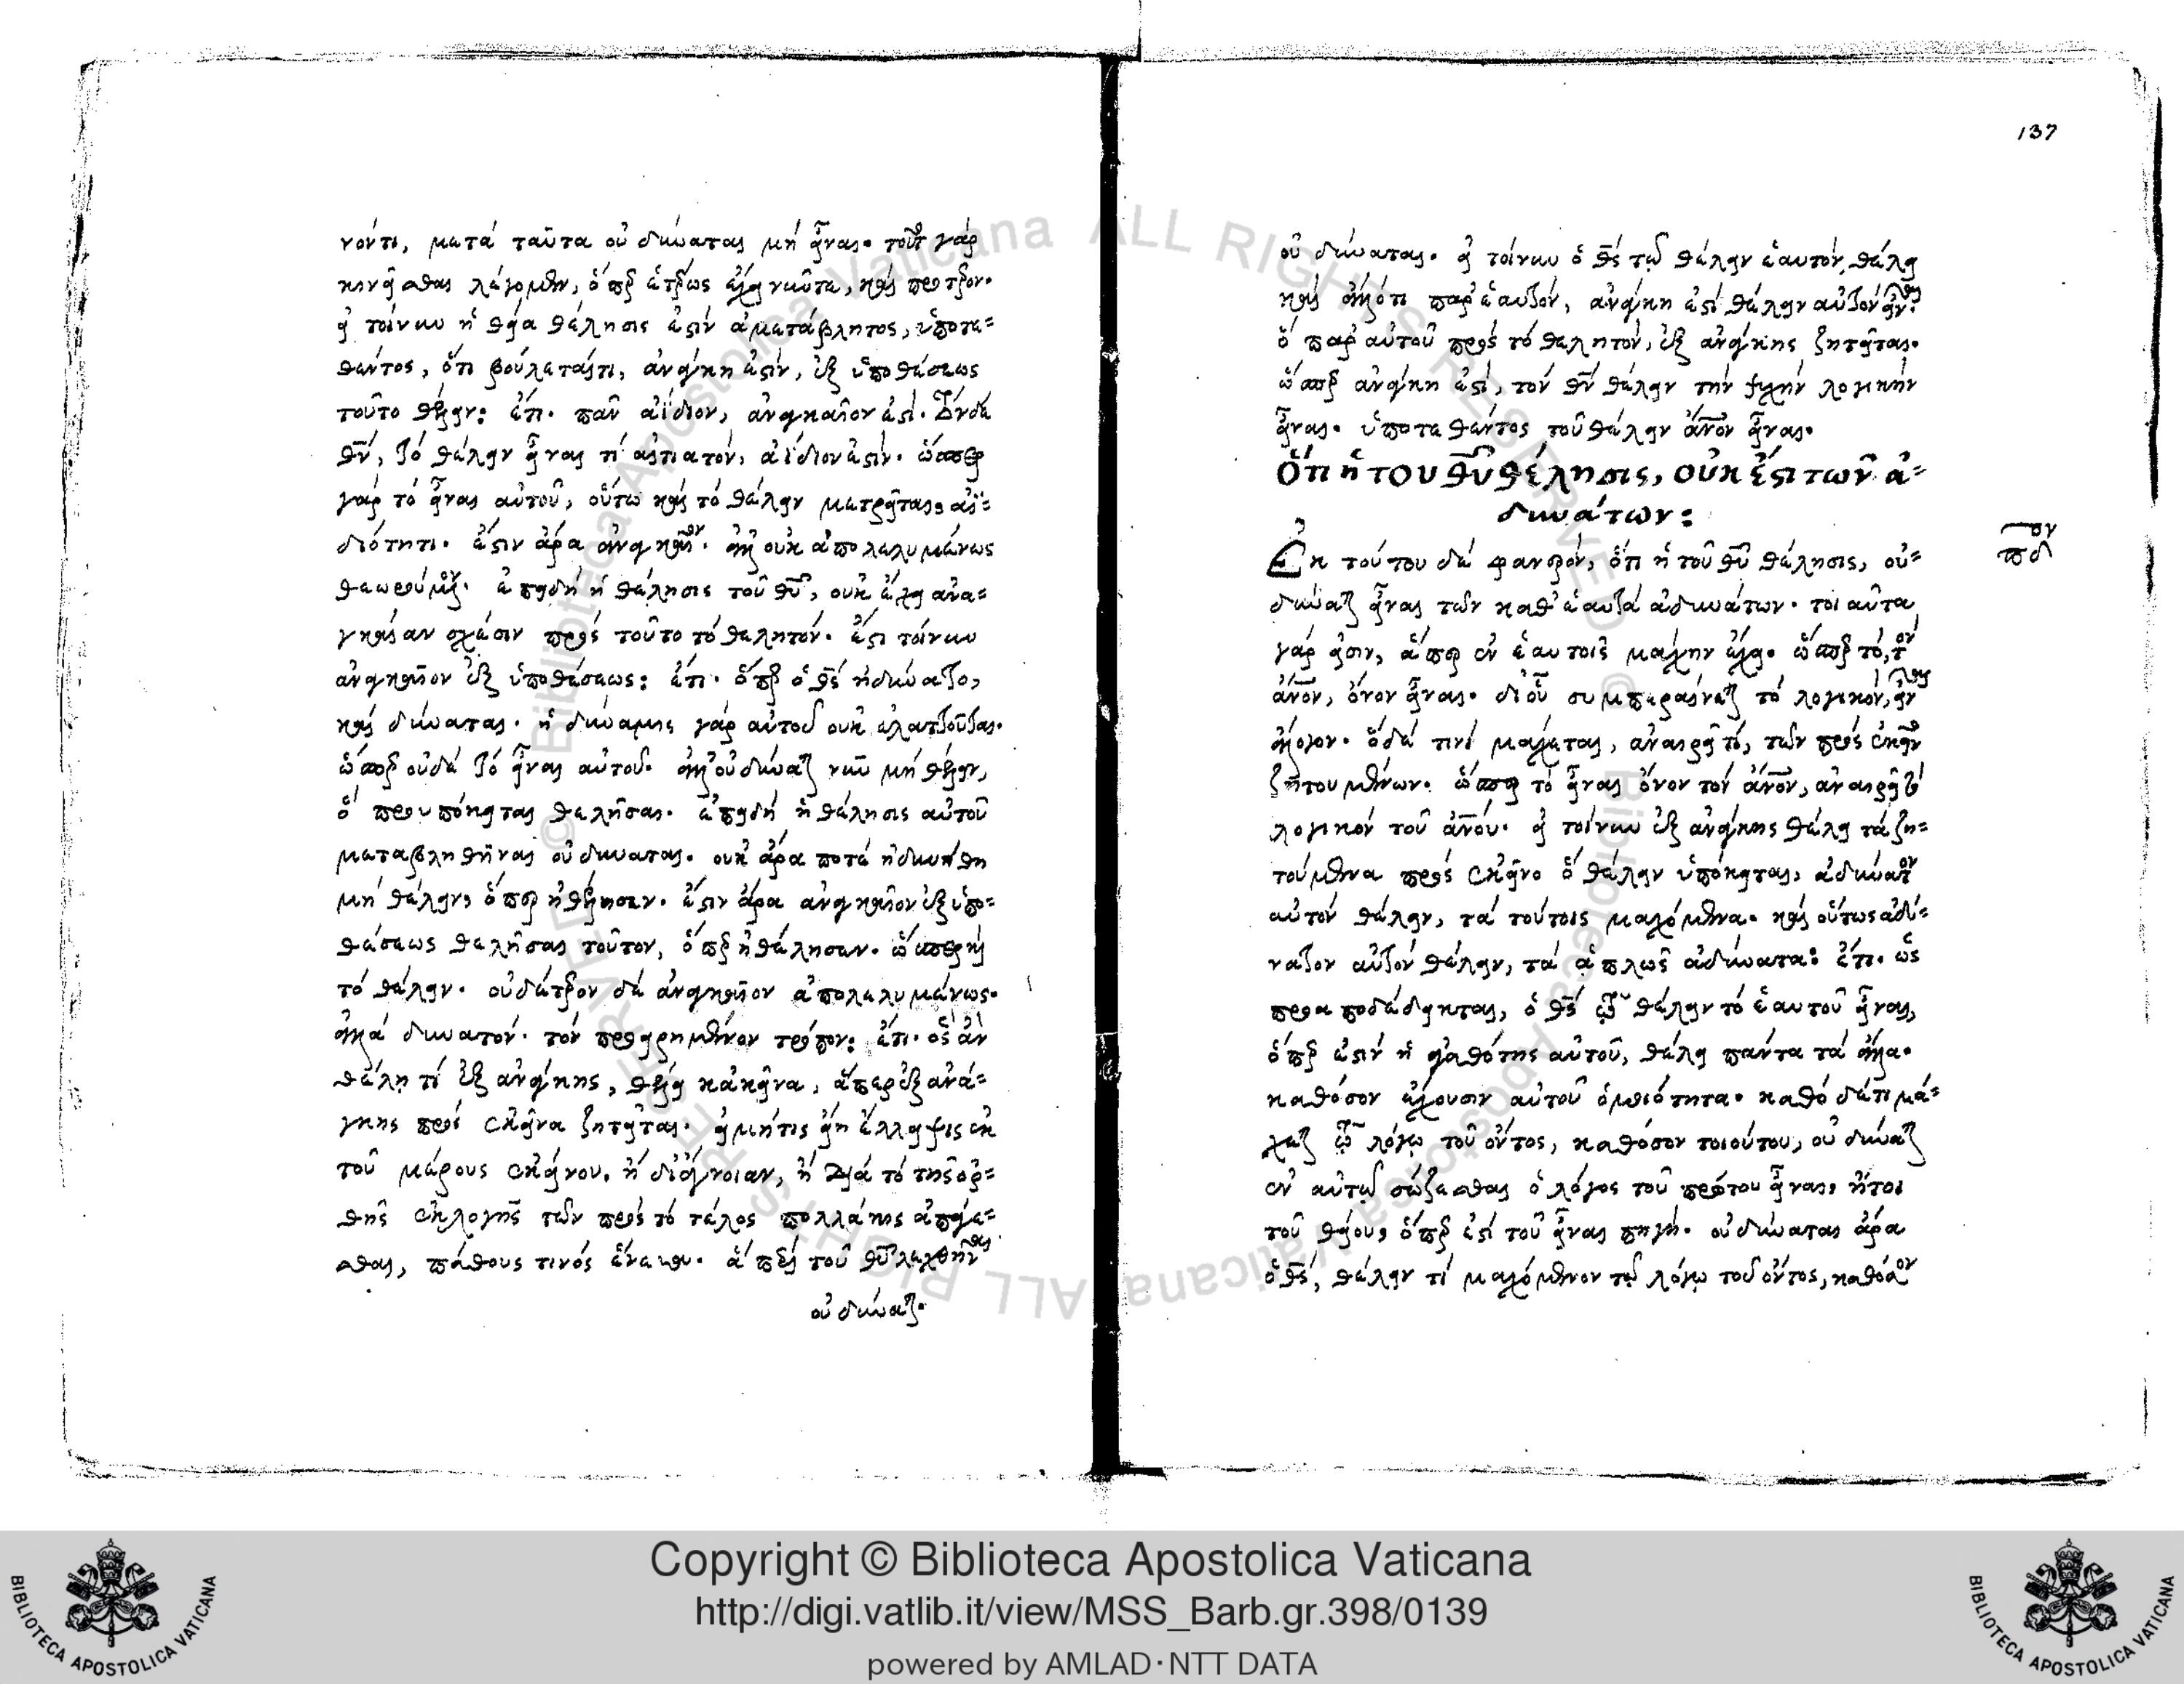 νοντι, μετὰ ταῦτα οὐ δύναται μὴ εἶναι. τοῦτο γὰρ
κινεῖσθαι λέγομεν, ὅπερ ἑτέρως ἔχει νῦν τε, καὶ πρότερον.
εἰ τοίνυν ἡ θεία θέλησις ἐστὶν ἀμετάβλητος, ὑποτε=
θέντος, ὅτι βούλεταί τι, ἀνάγκη ἐστὶν, ἐξ ὑποθέσεως
τοῦτο θέλειν: ἔτι. πᾶν ἀΐδιον, ἀναγκαῖον ἐστί. τὸν δὲ
θν̅, τὸ θέλειν εἶναι τί αἰτιατὸν, ἀΐδιον ἐστίν. ὥσπερ
γὰρ τὸ εἶναι αὐτοῦ, οὕτω καὶ τὸ θέλειν μετρεῖται, ἀϊ=
διότητι. ἐστὶν ἄρα ἀναγκαῖον. ἀλλ' οὐκ ἀπολελυμένως
θεωρούμενον. ἐπειδὴ ἡ θέλησις τοῦ θυ̅, οὐκ ἔχει ἀνα=
γκαίαν σχέσιν πρὸς τοῦτο τὸ θελητόν. ἔστι τοίνυν
ἀναγκαῖον ἐξ ὑποθέσεως: ἔτι. ὅπερ ὁ θς̅ ἠδύνατο,
καὶ δύναται. ἡ δύναμις γὰρ αὐτοῦ οὐκ ἐλαττοῦται.
ὥσπερ οὐδὲ τὸ εἶναι αὐτοῦ. ἀλλ' οὐ δύναται νῦν μὴ θέλειν,
ὃ προυπόκειται θελῆσαι. ἐπειδὴ ἡ θέλησις αὐτοῦ
μεταβληθῆναι οὐ δύναται. οὐκ ἄρα ποτὲ ἠδυνήθη
μὴ θέλειν, ὅπερ ἠθέλησεν. ἐστὶν ἄρα ἀναγκαῖον ἐξ ὑπο=
θέσεως θελῆσαι τοῦτον, ὅπερ ἠθέλησεν. ὥσπερ καὶ
τὸ θέλειν. οὐδέτερον δὲ ἀναγκαῖον ἀπολελυμένως.
ἀλλὰ δυνατὸν. τὸν προειρημένον τρόπον: ἔτι. ὃς ἂν
θέλῃ τί ἐξ ἀνάγκης, θέλει κἀκεῖνα, ἅπερ ἐξ ἀνά=
γκης πρὸς ἐκεῖνα ζητεῖται. εἰ μήτις εἴη ἔλλειψις ἐκ
τοῦ μέρους ἐκείνου, ἢ δι' ἄγνοιαν, ἢ διὰ τὸ τῆς ὀρ=
θῆς ἐκλογῆς τῶν πρὸς τὸ τέλος πολλάκις ἀπάγε=
σθαι, πάθους τινὸς ἕνεκεν. ἅπερ ἐπὶ τοῦ θυ̅ λεχθῆναι
οὐ δύναται.
137
οὐ δύναται. εἰ τοίνυν ὁ θς̅ τῷ θέλειν ἑαυτὸν, θέλει
καὶ ἄλλό τι παρ' ἑαυτὸν, ἀνάγκη ἐστὶ θέλειν αὐτὸν εἶναι
ὃ παρ' αὐτοῦ πρὸς τὸ θελητὸν, ἐξ ἀνάγκης ζητεῖται.
ὥσπερ ἀνάγκη ἐστὶ, τὸν θν̅ θέλειν τὴν ψυχὴν λογικὴν
εἶναι. ὑποτεθέντος τοῦ θέλειν ἄν̅ον εἶναι.
Ὅτι ἡ τοῦ θυ̅ θέλησις, οὐκ ἔστι τῶν ἀ=
δυνάτων:
πδον
Ἐκ τούτου δὲ φανερὸν, ὅτι ἡ τοῦ θυ̅ θέλησις, οὐ=
δύναται εἶναι τῶν καθ' ἑαυτὰ ἀδυνάτων. τοιαῦτα
γάρ εἰσιν, ἅπερ ἐν ἑαυτοῖς μάχην ἔχει. ὥσπερ τὸ, τὸν
ἄν̅ον, ὄνον εἶναι. δι' οὗ συμπεραίνεται τὸ λογικὸν, εἶναι
ἄλογον. ὃ δέ τινι μάχεται, ἀναιρεῖ τὶ, τῶν πρὸς ἐκεῖνον
ζητουμένων. ὥσπερ τὸ εἶναι ὄνον τὸν ἄν̅ον, ἀναιρεῖ τὸ
λογικὸν τοῦ ἀν̅ου. εἰ τοίνυν ἐξ ἀνάγκης θέλει τὰ ζη=
τούμενα πρὸς ἐκεῖνο ὃ θέλειν ὑπόκειται, ἀδύνατον
αὐτὸν θέλειν, τὰ τούτοις μαχόμενα. καὶ οὕτως ἀδύ=
νατον αὐτὸν θέλειν, τὰ ἁπλῶς ἀδύνατα: ἔτι. ὡς
προαποδέδεικται, ὁ θς̅ τῷ θέλειν τὸ ἑαυτοῦ εἶναι,
ὅπερ ἐστὶν ἡ ἀγαθότης αὐτοῦ, θέλει πάντα τὰ ἄλλα.
καθόσον ἔχουσιν αὐτοῦ ὁμοιότητα. καθὸ δέ τι μά=
χεται τῷ λόγῳ τοῦ ὄντος, καθόσον τοιούτου, οὐ δύναται
ἐν αὐτῷ σώζεσθαι ὁ λόγος τοῦ πρώτου εἶναι, ἤτοι
τοῦ θείου, ὅπερ ἐστὶ τοῦ εἶναι πηγή. οὐ δύναται ἄρα
ὁ θς̅, θέλειν τί μαχόμενον τῷ λόγῳ τοῦ ὄντος, καθόσον
Copyright © Biblioteca Apostolica Vaticana
http://digi.vatlib.it/view/MSS_Barb.gr.398/0139
powered by AMLAD·NTT DATA